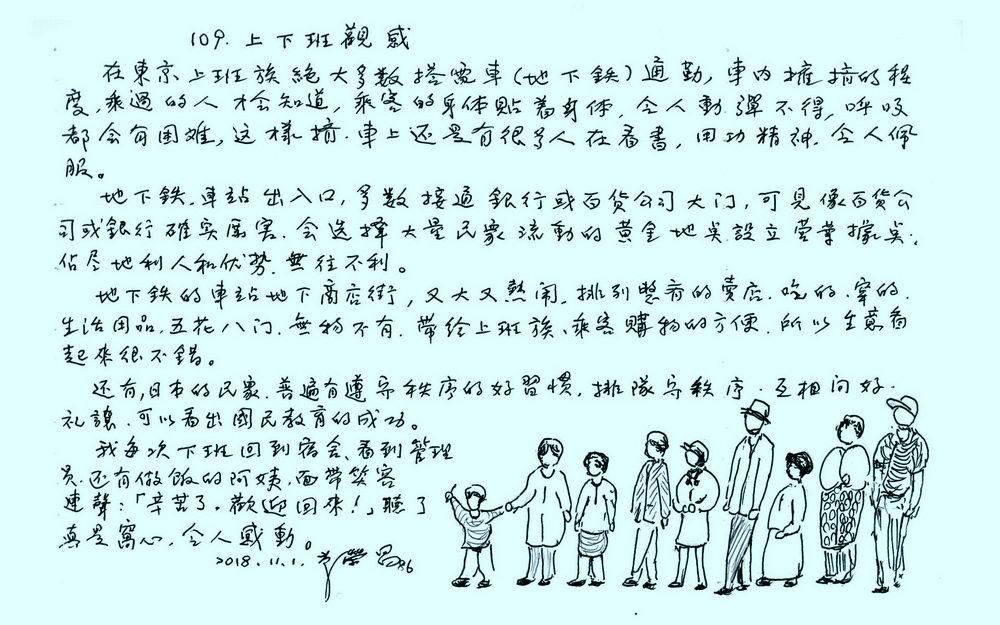 109. 上下班觀感
在東京上班族絕大多數搭電車(地下鉄)通勤,車內擁擠的程
度,乘過的人才会知道,乘客的身体貼着身体,令人動彈不得,呼吸
都会有困难,这樣擠.車上还是有很多人在看書,用功精神.令人佩
服。
地下鉄.車站出入口,多數接通銀行或百货公司大门,可見像百货公
司或銀行確实厉害.会选择大量民衆流動的黄金地点設立营業據点.
佔尽地利人和优势.無往不利。
地下鉄的車站地下商店街,又大又熱闹.排列整齐的賣店.吃的.穿的.
生活用品.五花八门.無物不有.帶给上班族、乘客購物的方便.所以生意看
起來很不錯。
还有,日本的民衆.普遍有遵守秩序的好習慣.排隊守秩序.互相问好.
礼讓.可以看出國民教育的成功。
我每次下班回到宿舍、看到管理
员.还有做飯的阿姨.面带笑容
連聲:「辛苦了。歡迎回來!」聽了
真是窩心.令人感動。
2018.11.1. 學 86